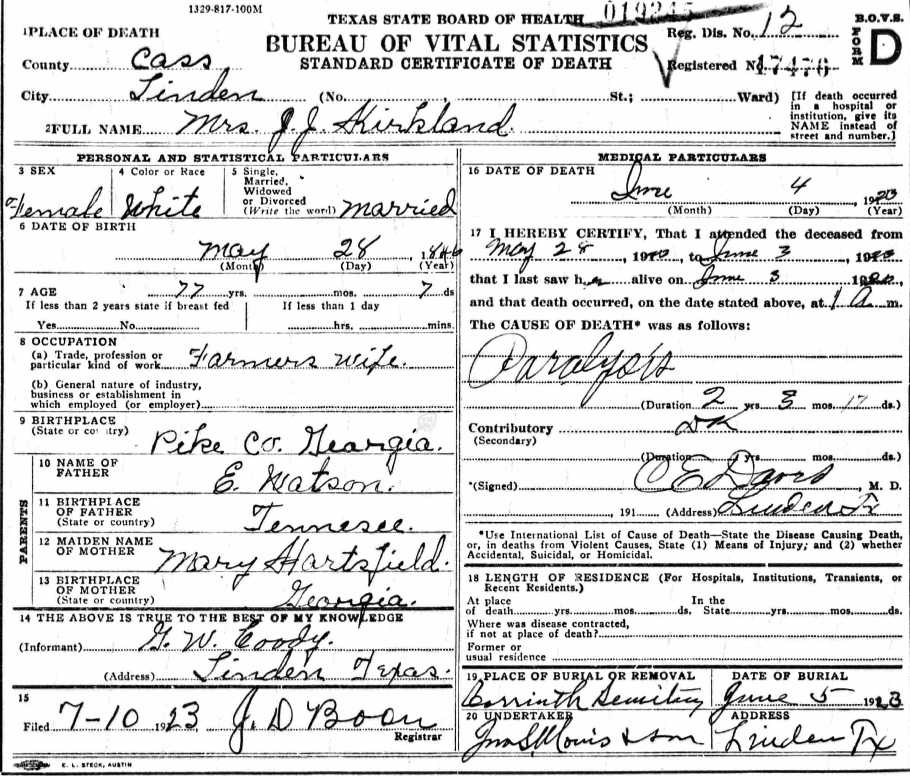 1329-817-100M
TEXAS STATE BOARD OF HEALTH
BUREAU OF VITAL STATISTICS
STANDARD CERTIFICATE OF DEATH
019245
Reg. Dis. No. 12
Registered No. 17476
B.O.V.S.
FORM D
1 PLACE OF DEATH
County Cass
City Linden (No. , St.; Ward)
[If death occurred in a hospital or institution, give its NAME instead of street and number.]
2 FULL NAME Mrs. J. J. Kirkland.
PERSONAL AND STATISTICAL PARTICULARS
3 SEX
Female
4 Color or Race
White
5 Single,
Married,
Widowed
or Divorced
(Write the word) Married
6 DATE OF BIRTH
May 28 1846
(Month) (Day) (Year)
7 AGE 77 yrs. mos. 7 ds
If less than 2 years state if breast fed
Yes No
If less than 1 day
hrs. mins.
8 OCCUPATION
(a) Trade, profession or
particular kind of work Farmers wife.
(b) General nature of industry,
business or establishment in
which employed (or employer)
9 BIRTHPLACE
(State or country)
Pike Co. Georgia.
PARENTS
10 NAME OF
FATHER
E. Watson.
11 BIRTHPLACE
OF FATHER
(State or country)
Tennesee.
12 MAIDEN NAME
OF MOTHER
Mary Hartsfield.
13 BIRTHPLACE
OF MOTHER
(State or country)
Georgia.
14 THE ABOVE IS TRUE TO THE BEST OF MY KNOWLEDGE
(Informant) G. W. Coody.
(Address) Linden Texas.
15
Filed 7-10 1923 J. D Boon
Registrar
E. L. STECK, AUSTIN
MEDICAL PARTICULARS
16 DATE OF DEATH
June 4 1923
(Month) (Day) (Year)
17 I HEREBY CERTIFY, That I attended the deceased from
May 28, 19 , to June 3, 19
that I last saw her alive on June 3 19 ,
and that death occurred, on the date stated above, at 1 A m.
The CAUSE OF DEATH* was as follows:
Paralysis
(Duration 2 yrs 3 mos 17 ds.)
Contributory DK
(Secondary)
(Duration yrs. mos. ds.)
*(Signed) O E Davis, M. D.
, 191 (Address) Linden Tx
*Use International List of Cause of Death—State the Disease Causing Death,
or, in deaths from Violent Causes, State (1) Means of Injury; and (2) whether
Accidental, Suicidal, or Homicidal.
18 LENGTH OF RESIDENCE (For Hospitals, Institutions, Transients, or
Recent Residents.)
At place
of death yrs. mos. ds.
In the
State yrs. mos. ds.
Where was disease contracted,
if not at place of death?
Former or
usual residence
19 PLACE OF BURIAL OR REMOVAL
Corrinth Semitary
DATE OF BURIAL
June 5 1923
20 UNDERTAKER
Jno S. Morris & Son
ADDRESS
Linden Tx